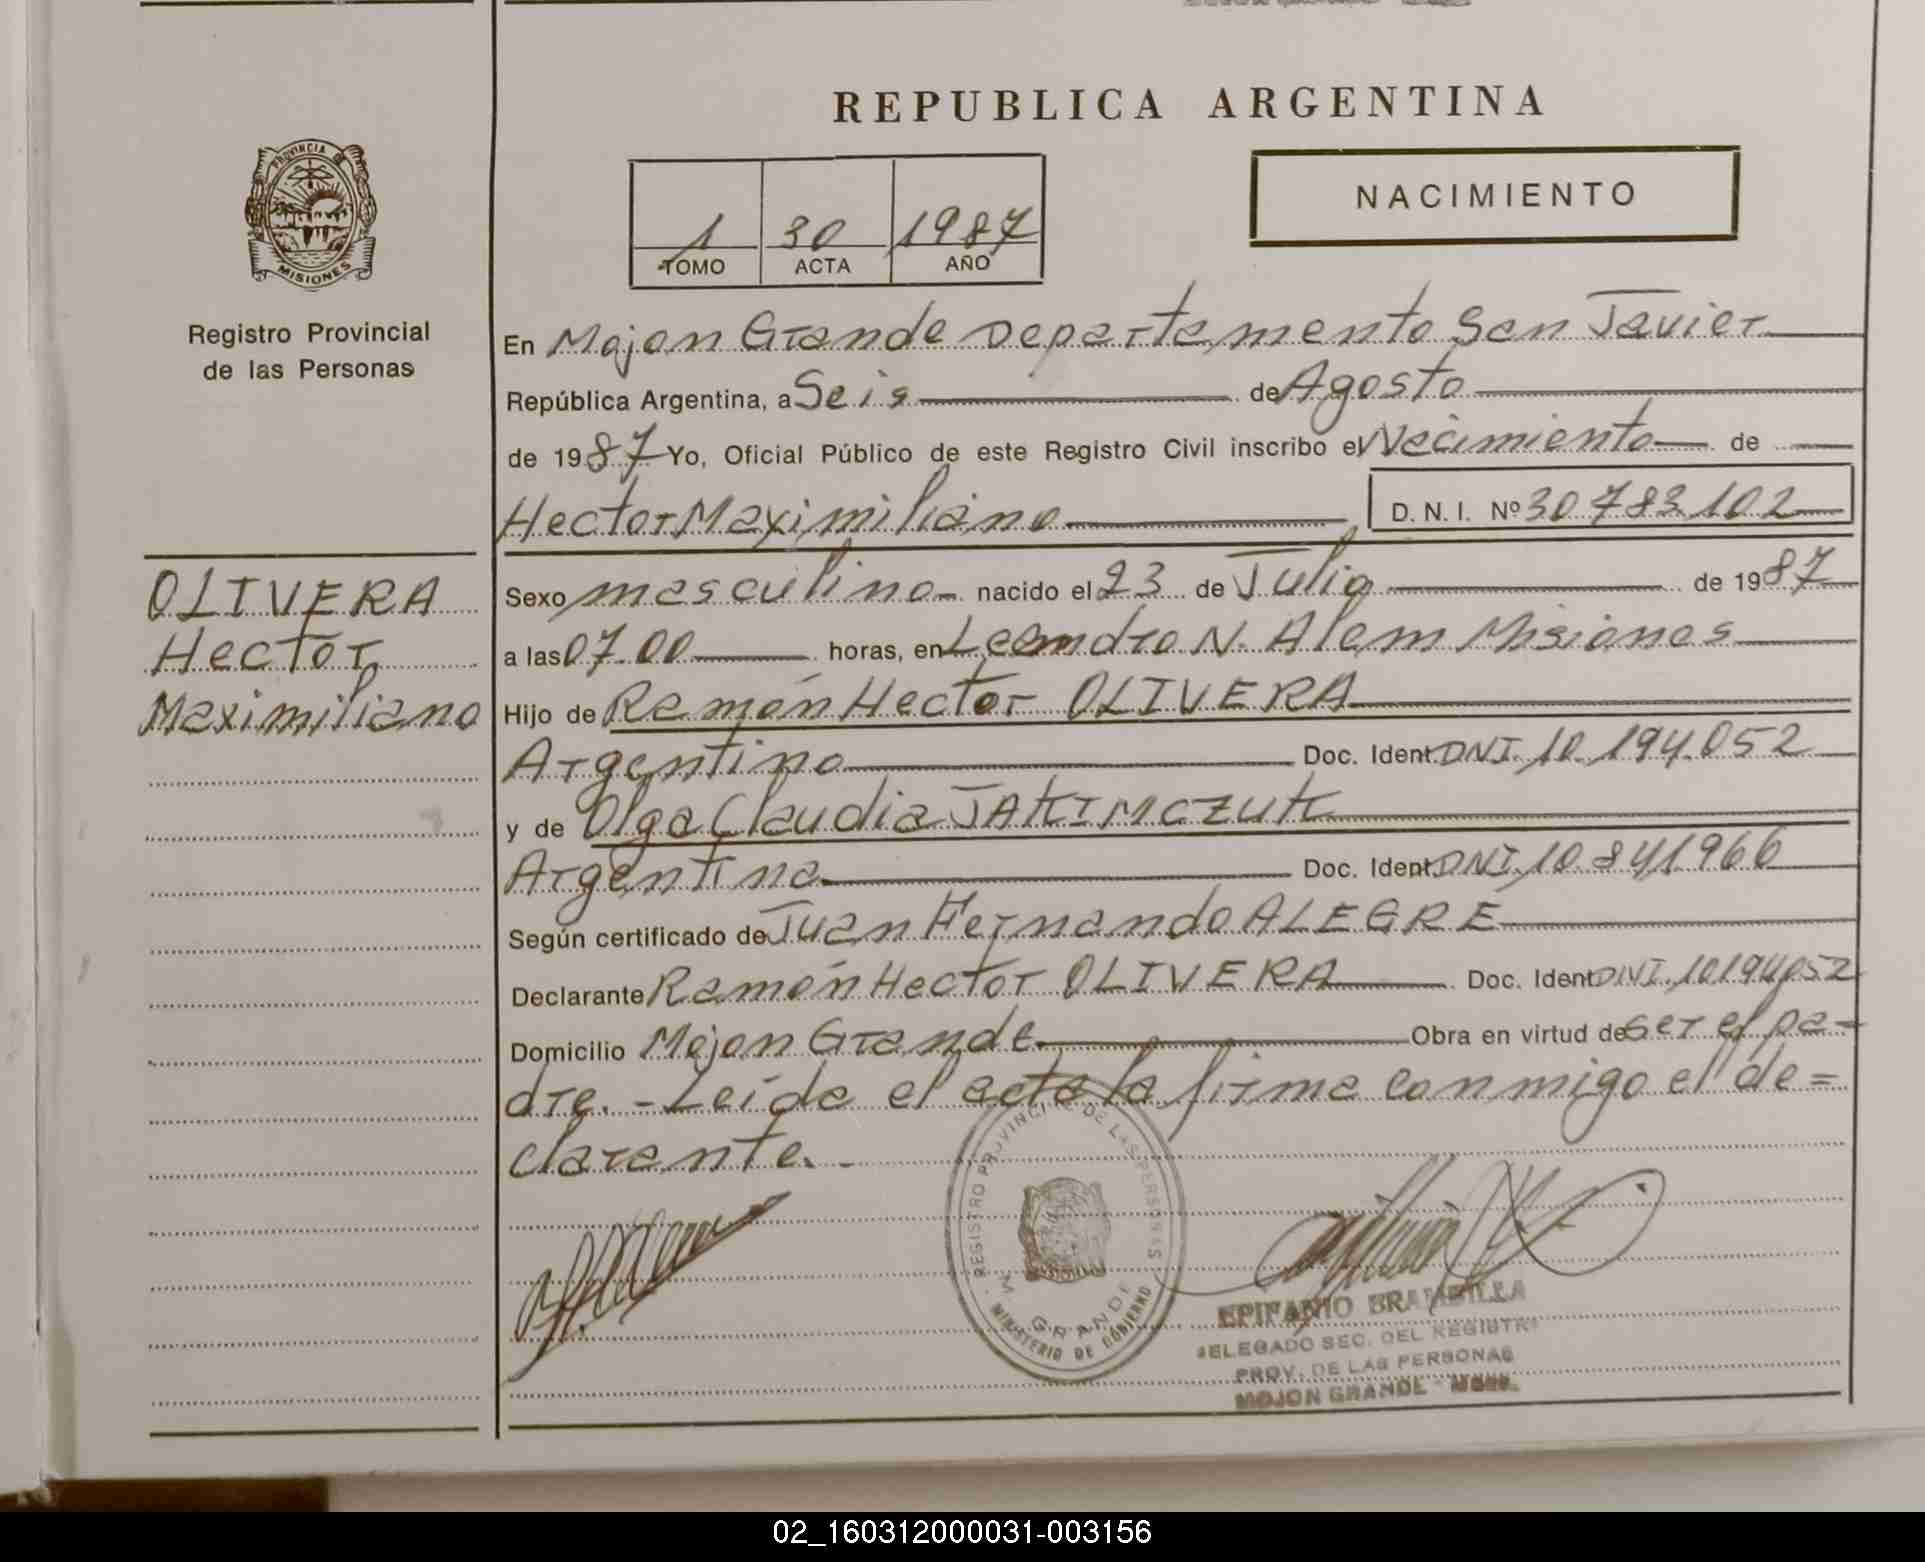 REPUBLICA ARGENTINA
NACIMIENTO
1 30 1987
TOMO ACTA AÑO
PROVINCIA DE
MISIONES
Registro Provincial
de las Personas
OLIVERA
Hector
Maximiliano
En Mojon Grande Departamento San Javier
República Argentina, a Seis de Agosto
de 1987 Yo, Oficial Público de este Registro Civil inscribo el Nacimiento de
Hector Maximiliano D. N. I. Nº 30 783 102
Sexo masculino nacido el 23 de Julio de 1987
a las 07.00 horas, en Leandro N. Alem Misiones
Hijo de Ramón Hector OLIVERA
Argentino Doc. Ident. DNI. 10.194.052
y de Olga Claudia JAKIMCZUK
Argentina Doc. Ident. DNI. 10.841966
Según certificado de Juan Fernando ALEGRE
Declarante Ramón Hector OLIVERA Doc. Ident. DNI. 10194052
Domicilio Mojon Grande Obra en virtud de ser el pa-
dre. - Leída el acta la firma conmigo el de=
clarante. -
REGISTRO PROVINCIAL DE LAS PERSONAS
M. GRANDE
MINISTERIO DE GOBIERNO
EPIFANIO BRAMBILLA
DELEGADO SEC. DEL REGISTRO
PROV. DE LAS PERSONAS
MOJON GRANDE
02_160312000031-003156